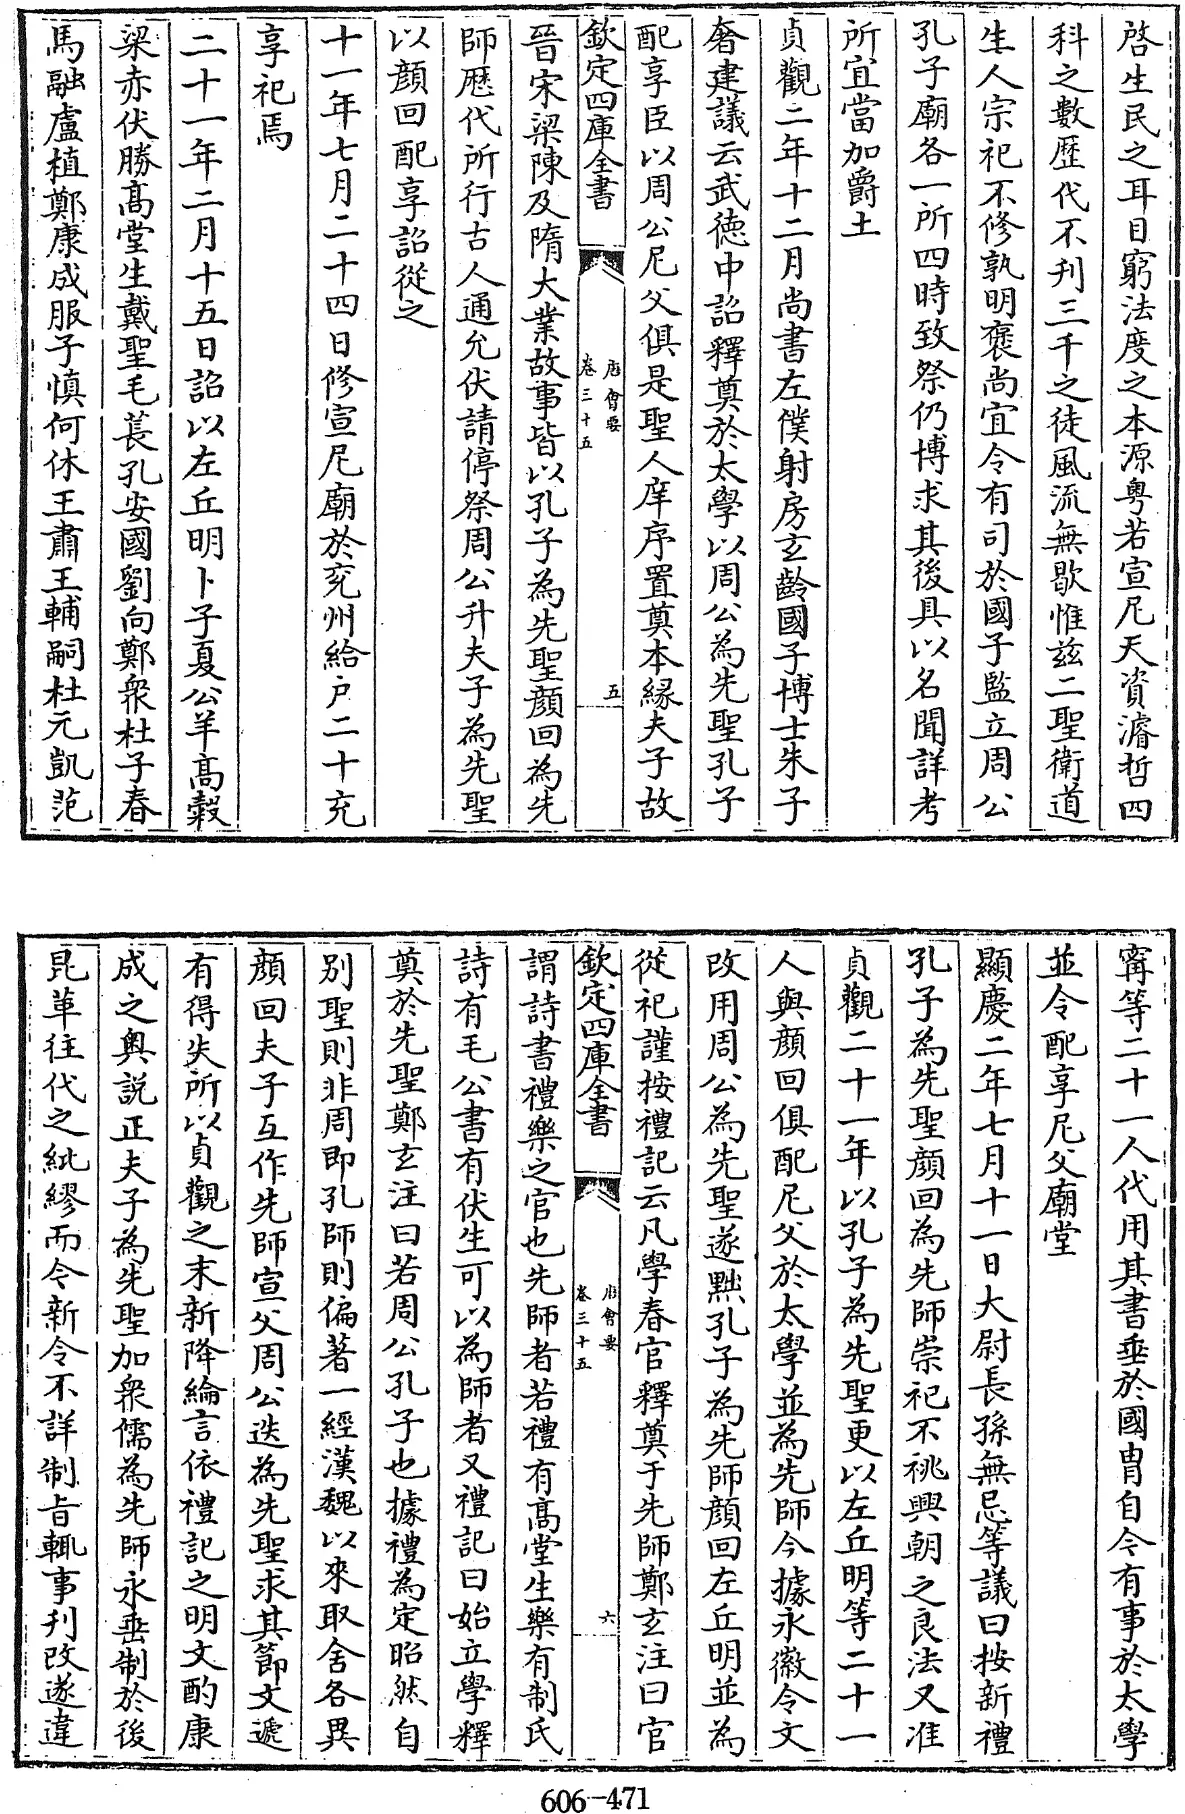 啓生民之耳目窮法度之本源粤若宣尼天資濬哲四
科之數歴代不刋三千之徒風流無歇惟兹二聖衛道
生人宗祀不修孰明襃尚宜令有司於國子監立周公
孔子廟各一所四時致祭仍博求其後具以名聞詳考
所宜當加爵土
貞觀二年十二月尚書左僕射房玄齡國子博士朱子
奢建議云武徳中詔釋奠於太學以周公為先聖孔子
配享臣以周公尼父俱是聖人庠序置奠本縁夫子故
欽定四庫全書
唐會要
卷三十五
五
晉宋梁陳及隋大業故事皆以孔子為先聖顔回為先
師歴代所行古人通允伏請停祭周公升夫子為先聖
以顔回配享詔從之
十一年七月二十四日修宣尼廟於兖州給户二十充
享祀焉
二十一年二月十五日詔以左丘明卜子夏公羊髙榖
梁赤伏勝髙堂生戴聖毛萇孔安國劉向鄭衆杜子春
馬融盧植鄭康成服子慎何休王肅王輔嗣杜元凱范
甯等二十一人代用其書垂於國胄自今有事於太學
並令配享尼父廟堂
顯慶二年七月十一日大尉長孫無忌等議曰按新禮
孔子為先聖顔回為先師崇祀不祧興朝之良法又准
貞觀二十一年以孔子為先聖更以左丘明等二十一
人與顔回俱配尼父於太學並為先師今據永徽令文
改用周公為先聖遂黜孔子為先師顔回左丘明並為
從祀謹按禮記云凡學春官釋奠于先師鄭玄注曰官
欽定四庫全書
唐會要
卷三十五
六
謂詩書禮樂之官也先師者若禮有髙堂生樂有制氏
詩有毛公書有伏生可以為師者又禮記曰始立學釋
奠於先聖鄭玄注曰若周公孔子也據禮為定昭然自
别聖則非周即孔師則偏著一經漢魏以來取舍各異
顔回夫子互作先師宣父周公迭為先聖求其節文遞
有得失所以貞觀之末新降綸言依禮記之明文酌康
成之奥説正夫子為先聖加衆儒為先師永垂制於後
昆革往代之紕繆而今新令不詳制旨輒事刋改遂違
606-471